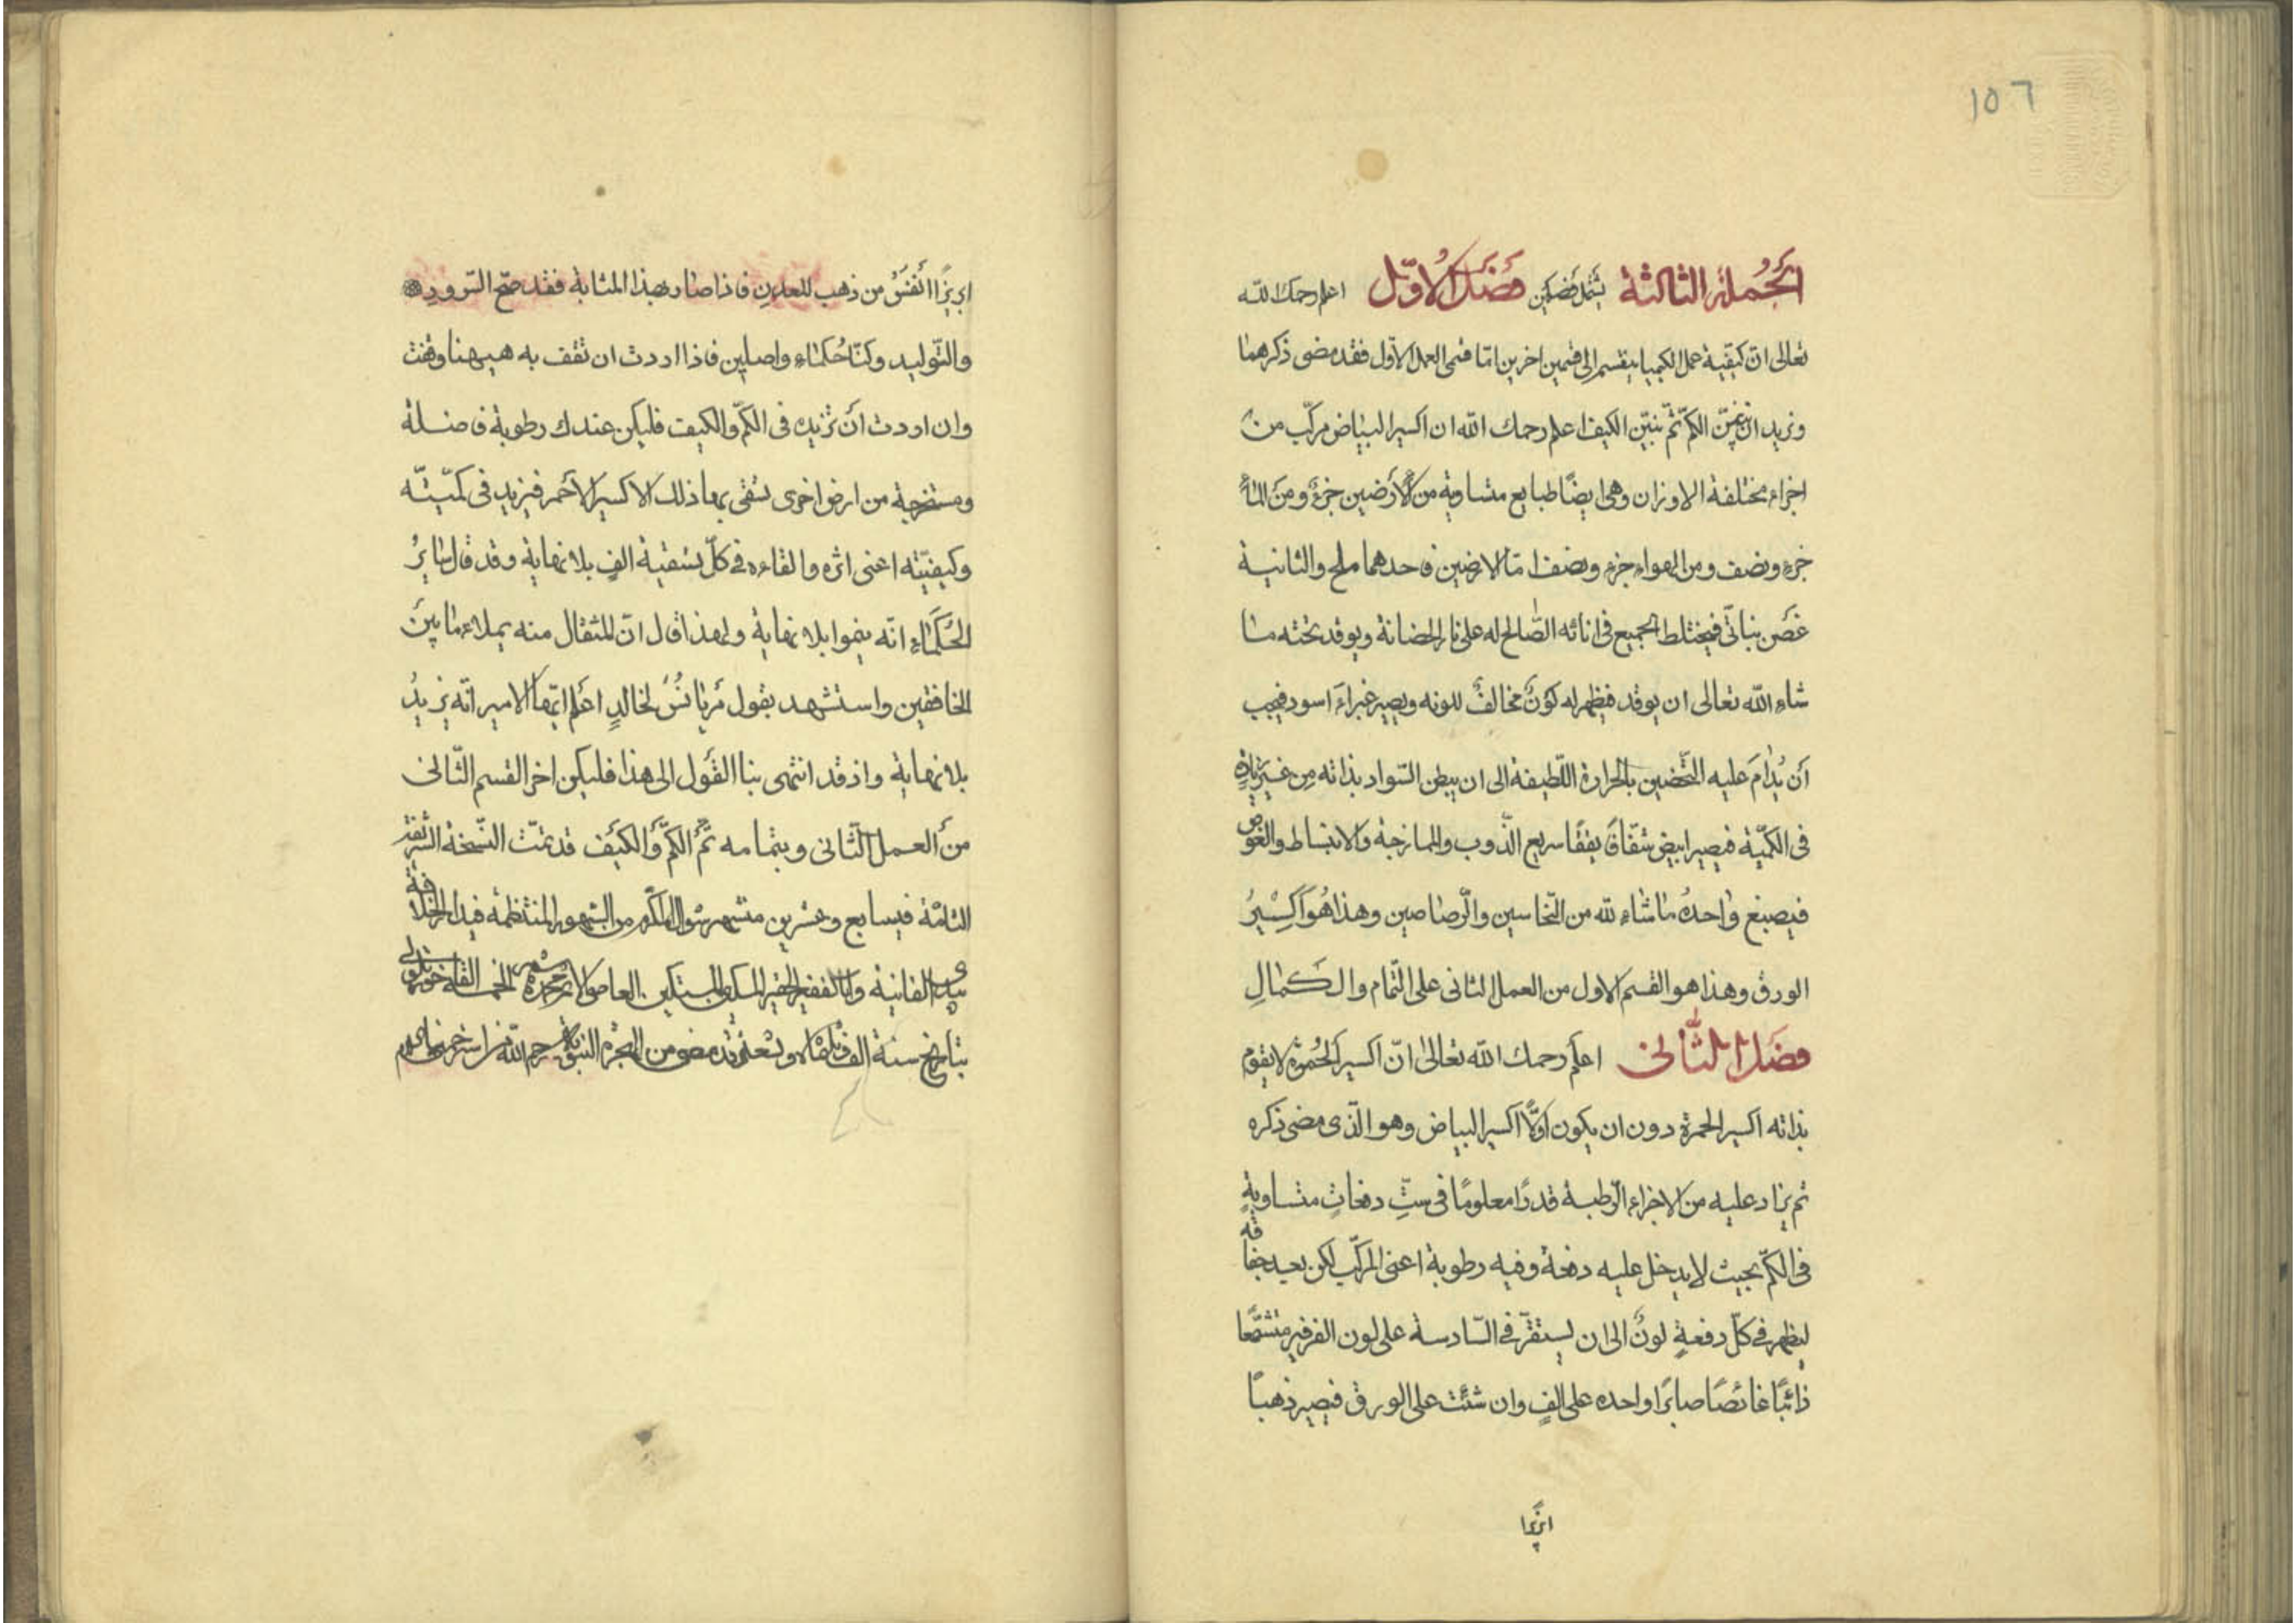 ١٥٦
الجُملة الثالثة يشمل فصلين فصل الاوّل اعلم رحمك الله
تعالى انّ كيفية عمل الكيميا ينقسم الى قسمين اخرين امّا قسمى العمل الاوّل فقد مضى ذكرهما
ونريد ان نبيّن الكمّ ثمّ نبيّن الكيف اعلم رحمك الله ان اكسير البياض مركّب من
اجزاء مختلفة الاوزان وهى ايضًا طبايع متساوية من الأرضين جزءٌ ومن الماءِ
جزء ونصف ومن الهواء جزء ونصف امّا الارضين فاحدهما ملح والثانية
غصن نباتّى فيختلط الجميع فى انائه الصّالح له على نار الحضانة ويوقد تحته ما
شاء الله تعالى ان يوقد فيظهر له كونٌ مخالفٌ للونه ويصير غبراءَ اسود فيجب
أن يُدامَ عليه التّحضين بالحرارة اللّطيفة الى ان يبطن السّواد بذاته مِن غير زيادةٍ
فى الكمّية فيصير ابيض شفّافَ يققًا سريع الذّوب والممازجة والانبساط والغوص
فيصبغ واحدهُ ما شاء لله من النّحاسين والرّصاصين وهذا هُوَ اكسِيْرُ
الورق وهذا هو القسم الاول من العمل الثانى على التّمام والكمالِ
فصَل الثّانى اعلم رحمك الله تعالىٰ انّ اكسير الحُموة لا يقوم
بذاته اكسير الحمرة دون ان يكون اوّلاً اكسير البياض وهو الّذى مضى ذكره
ثم يزاد عليه من الاجزاء الرّطبة قدرًا معلومًا فى ستِّ دفعاتٍ متساويةٍ
فى الكمّ بحيث لا يدخل عليه دفعة وفيه رطوبة اعنى المركّب لكن بعيد جفافه
ليظهر فى كلّ دفعةٍ لونٌ الى ان يستقرّ فى السّادسة على لون الفرفير متشمّعًا
ذائبًا غائصًا صابرًا واحده على الفٍ وان شئت على الورق فيصير ذهبًا
ابريزا
ابريزًا انفَسُ من ذهب المعدن فاذا صار بهذا المثابة فقد صحّ السّرور
والتّوليد وكنّا حُكماء واصلين فاذا اردت ان تقف به هيهنا وقفت
وان اردت أن تزيده فى الكمّ والكيف فليكن عندك رطوبة فاضلة
ومستخرجة من ارض اخرى تسقى بها ذلك الاكسير الأحمر فيزيد فى كمّيتّه
وكيفيّته اعنى اثره والقاءه فى كلّ تسقية الفٍ بلا نهاية وقد قال سايرُ
الحُكَماء انّه ينموا بلا نهاية ولهذا قال انّ المثقال منه يملاء ما بينَ
الخافقين واستشهد بقول مَريانُسُ لخالدٍ اعلم ايّها الامير انّه يزيدُ
بلا نهاية واذ قد انتهى بنا القَول الى هذا فليكن اخر القسم الثّانى
منَ العمل الثّانى وبتمامه تمَّ الكمّ والكَيف قد تمّت النّسخة الشريفة
التامّة فى سابع وعشرين من شهر شوال المكرّم من الشهور المنتظمة
الفانية وانا الفقير الحقير المسكين العاصى
بتاريخ سنة الف وقد مضى من الهجرة النبويّة رحم الله